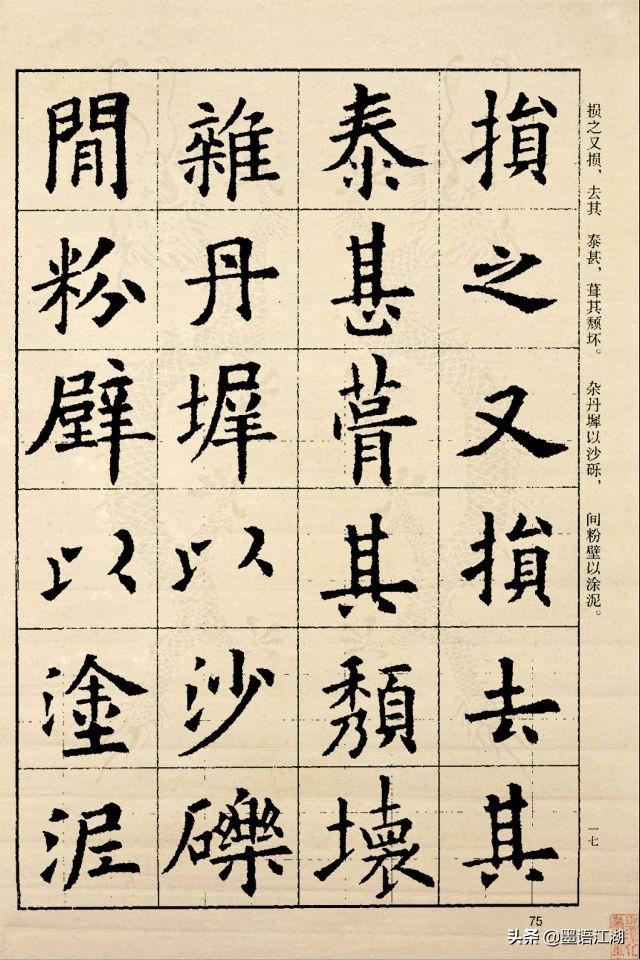 損之又損去其
泰甚葺其頽壞
雜丹墀以沙礫
閒粉壁以塗泥
损之又损、去其 泰甚，葺其颓坏。 杂丹墀以沙砾， 间粉壁以涂泥。
一七
75
头条 @墨语江湖